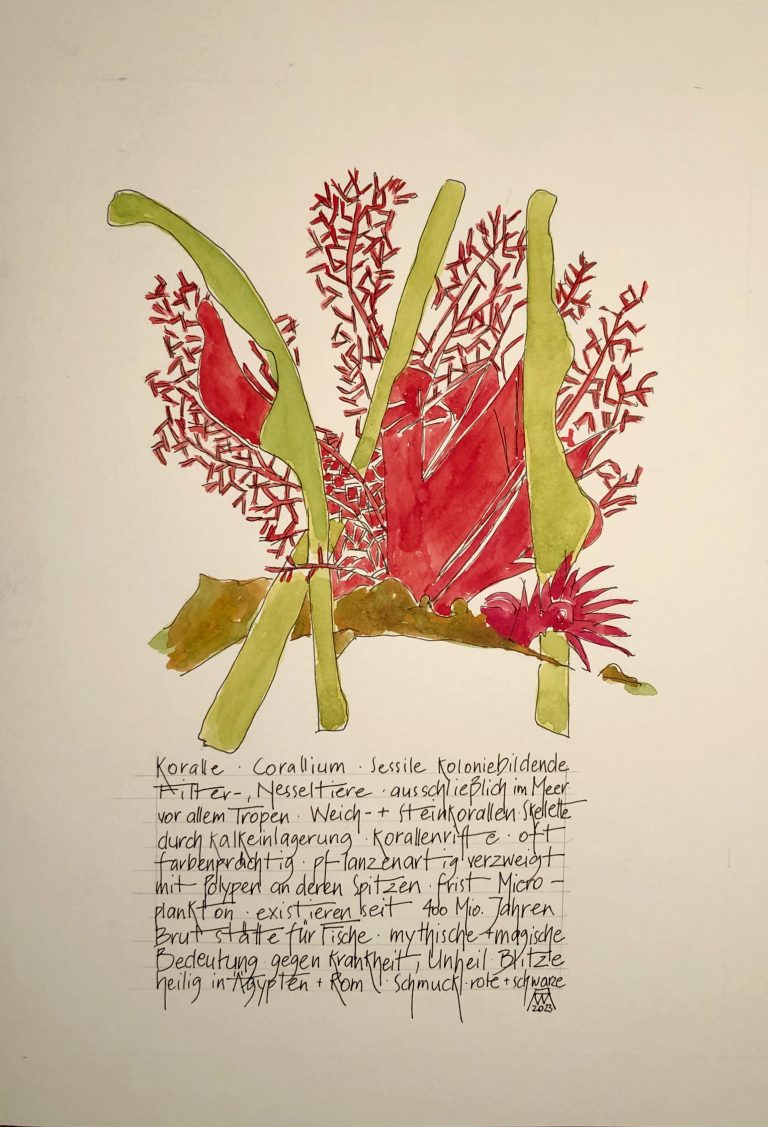 Koralle · Corallium · Sessile Koloniebildende
Filter-, Nesseltiere · ausschließlich im Meer
vor allem Tropen · Weich- + Steinkorallen · Skelette
durch Kalkeinlagerung · Korallenriffe · oft
farbenprächtig · pflanzenartig verzweigt
mit Polypen an deren Spitzen · frist Micro-
plankton · existieren seit 400 Mio. Jahren
Brutstätte für Fische · mythische + magische
Bedeutung gegen Krankheit, Unheil Blitze
heilig in Ägypten + Rom · Schmuck · rote + schwarze
2023